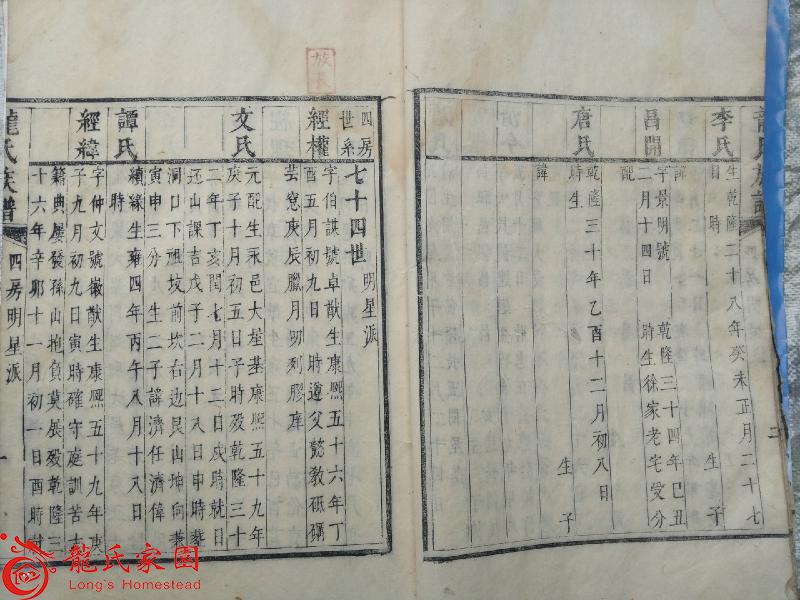 龍氏族譜
李氏
生乾隆二十八年癸未正月二十七
日 時 生 子
昌開
諱 字景明號 乾隆三十四年己丑
二月十四日 時生徐家老宅受分
配
唐氏
乾隆三十年乙酉十二月初八日
時生 生 子
諱
二
四房
世系
七十四世 明星派
經權
字伯謀號卓猷生康熙五十六年丁
酉五月初九日 時遵父懿教砥礪
芸窓庚辰臘月明列膠庠
文氏
元配生永邑大𡊨基康熙五十九年
庚子十月初五日子時殁乾隆三十
二年丁亥閏七月十二日戌時就日
還山課吉戊子二月十八日申時葬
洞口下祖坟前坎右边艮山坤向兼
寅申三分 生二子諱濟任濟偉
譚氏
續緣生雍四年丙午八月十八日
時
經緯
字仲文號徽猷生康熙五十九年庚
子九月初九日寅時確守庭訓苦七
籍典屢發孫山抱負莫展殁乾隆三
十六年辛卯十一月初一日酉時
龍氏族譜
四房明星派
一
族長
龍氏家園
Long's Homestead